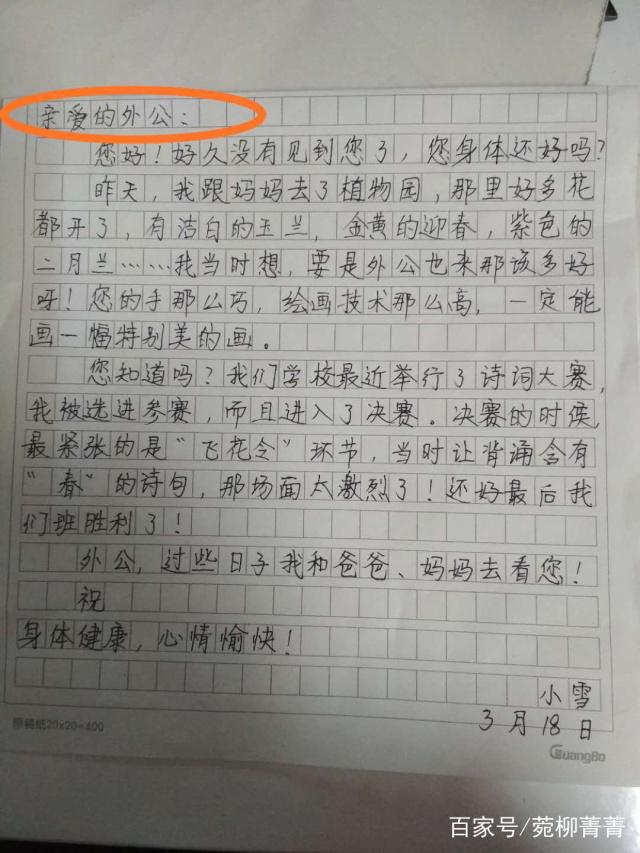 亲爱的外公：
您好！好久没有见到您了，您身体还好吗？
昨天，我跟妈妈去了植物园，那里好多花
都开了，有洁白的玉兰，金黄的迎春，紫色的
二月兰……我当时想，要是外公也来那该多好
呀！您的手那么巧，绘画技术那么高，一定能
画一幅特别美的画。
您知道吗？我们学校最近举行了诗词大赛，
我被选进参赛，而且进入了决赛。决赛的时候，
最紧张的是“飞花令”环节，当时让背诵含有
“春”的诗句，那场面太激烈了！还好最后我
们班胜利了！
外公，过些日子我和爸爸、妈妈去看您！
祝
身体健康，心情愉快！
小雪
3月18日
原稿纸20×20=400
GuangBo
百家号/菀柳菁菁